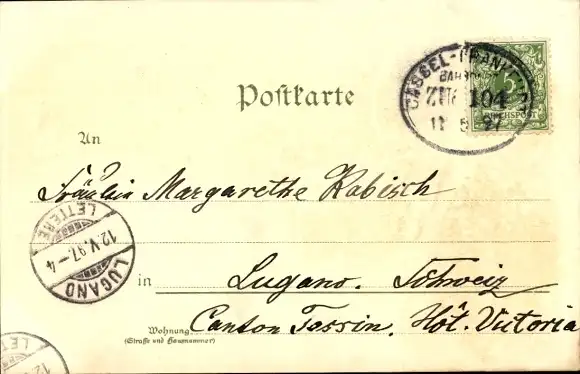 CASSEL-FRANKFURT
BAHNPOST
ZUG 104
11 5 97
5
REICHSPOST
Postkarte
An
Fräulein Margarethe Kabisch
LUGANO
12.V.97.-4
LETTERE
in Lugano. Schweiz
Wohnung Canton Tessin, Hôt. Victoria
(Straße und Hausnummer)
LETTERE
12.V